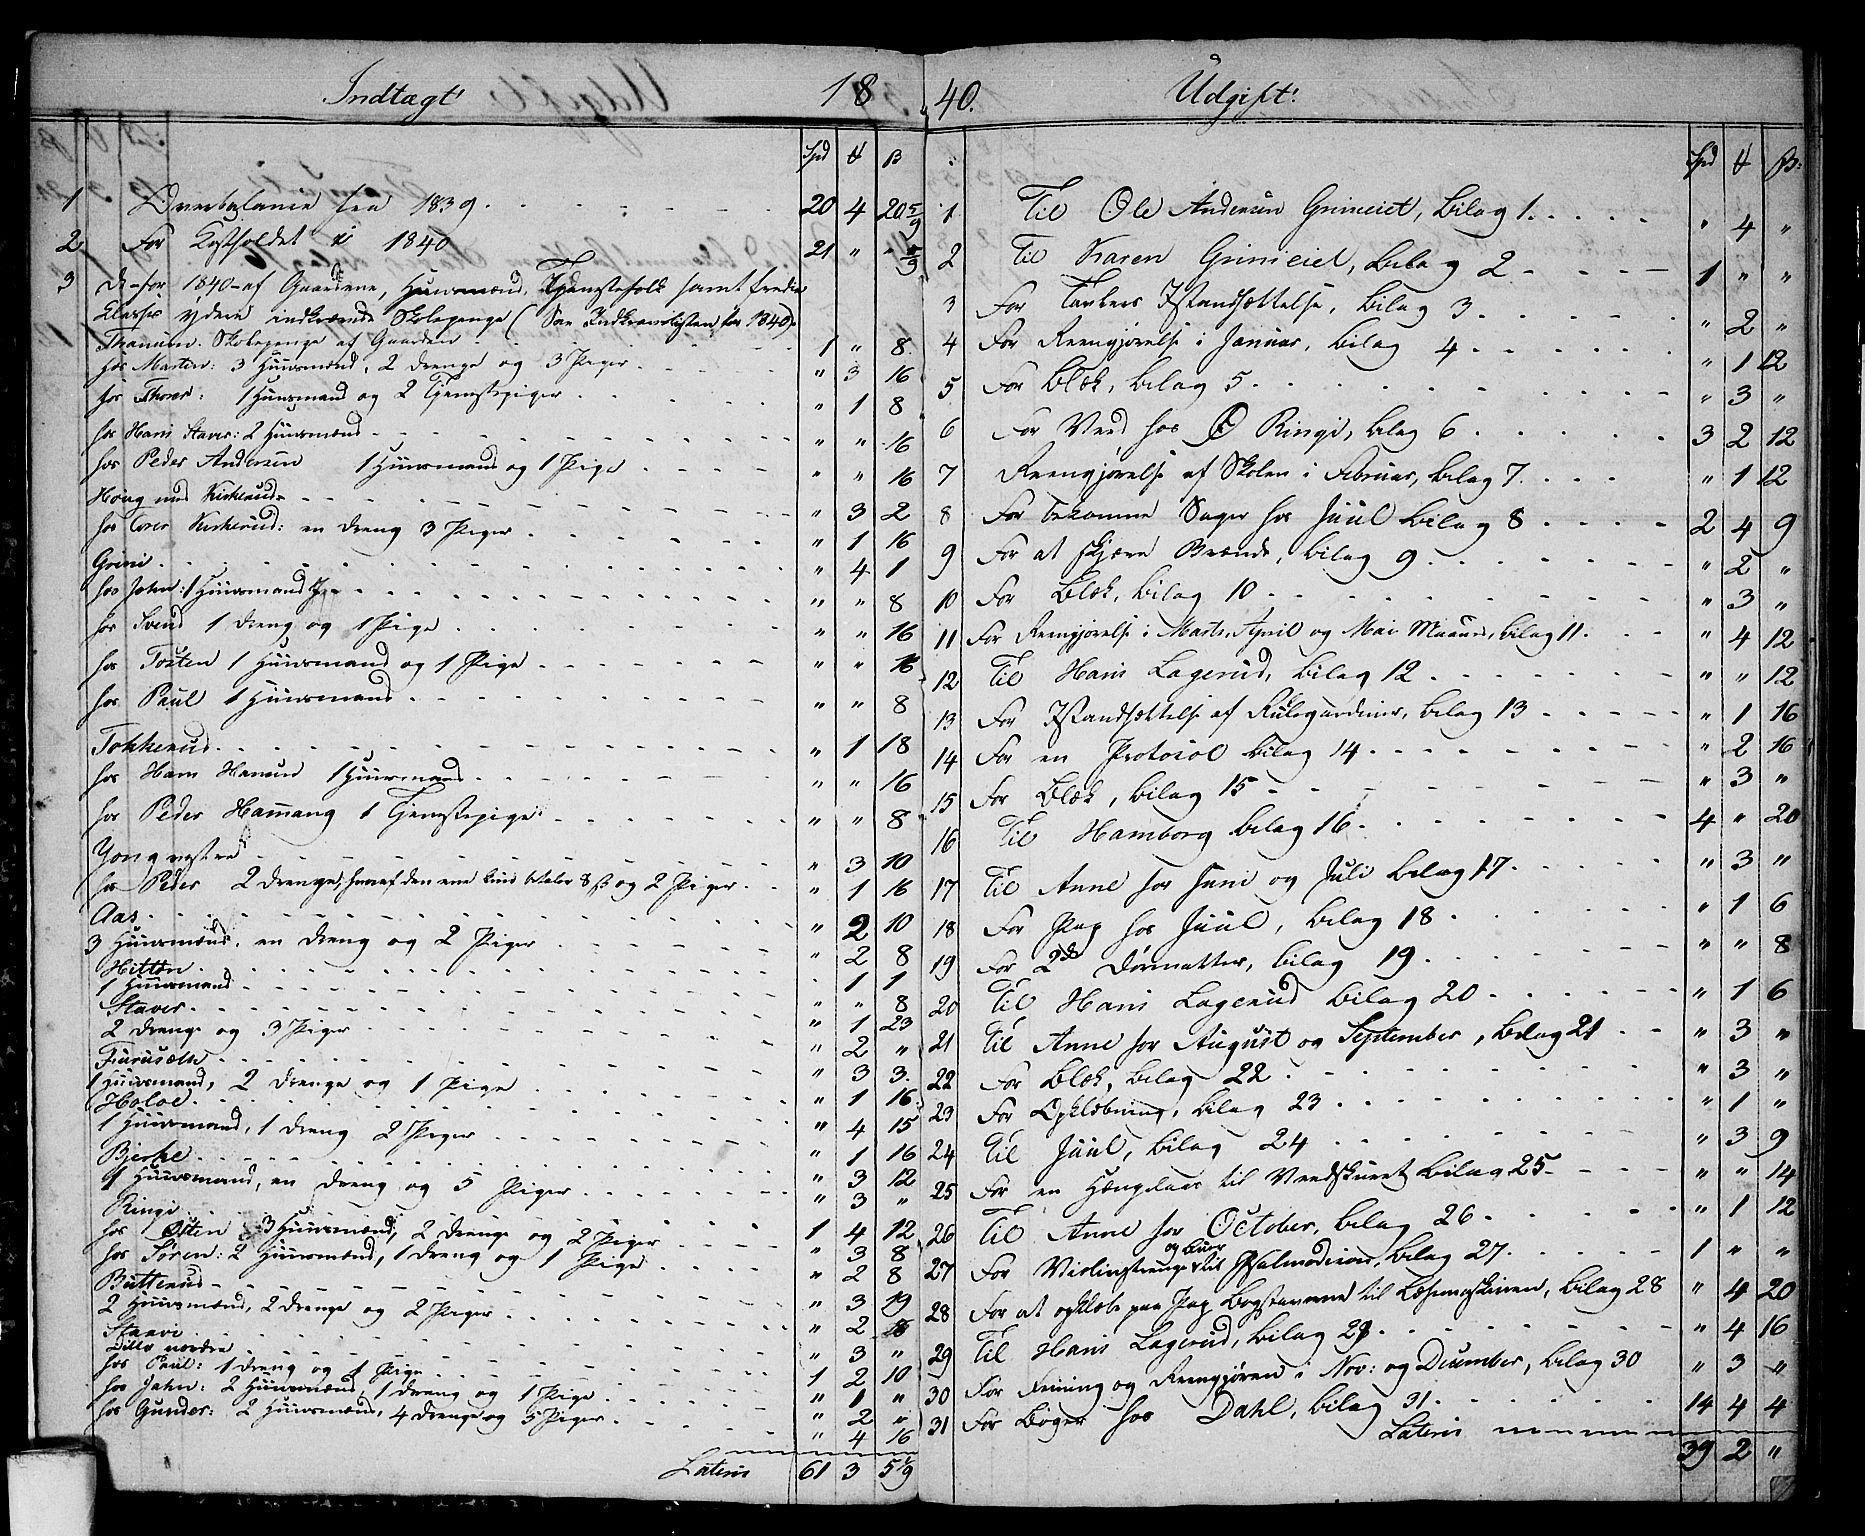 Indtægt 18
Spd ₰ ß
1 Overbalance fra 1839 20 4 20 5/9
2 For Kostholdet i 1840 21 " " 5/9
3 Do for 1840 af Gaardene, Huusmænd, Tjenestefolk samt fredie
Classes ydere indkrævede Skolepenge (See Indkrævelisten for 1840).
Thanum. Skolepenge af Gaarden 1 " 8
hos Marten: 3 Huusmænd, 2 Drenge og 3 Piger " 3 16
hos Thorer: 1 Huusmand og 2 Tjenestepiger " 1 8
hos Hans Staver: 2 Huusmænd " " 16
hos Peder Andersen 1 Huusmand og 1 Pige " " 16
Houg med Kirkerud " 3 2
hos Torer Kirkerud: en Dreng 3 Piger " 1 16
Grini " 4 1
hos John: 1 Huusmand " " 8
hos Svend 1 Dreng og 1 Pige " " 16
hos Tosten 1 Huusmand og 1 Pige " " 16
hos Paul 1 Huusmand " " 8
Tokkerud " 1 18
hos Hans Hansen 1 Huusmand " " 16
hos Peder Hamang 1 Tjenestepige " " 8
Yong vestre " 3 10
hos Peder 2 Drenge, hvoraf den ene kun betaler 8 ß og 2 Piger " 1 16
Aas " 2 10
3 Huusmænd, en Dreng og 2 Piger " 2 8
Hitten " 1 1
1 Huusmand " " 8
Staver " 1 23
2 Drenge og 3 Piger " 2 "
Furusæth " 3 3
1 Huusmand, 2 Drenge og 1 Pige " 1 16
Holoe " 4 15
1 Huusmand, 1 Dreng 2 Piger " 1 16
Bjerke " 3 12
1 Huusmand, en Dreng og 5 Piger " 3 "
Ringi 1 4 12
hos Osten 3 Huusmænd, 2 Drenge og 2 Piger " 3 8
hos Søren: 2 Huusmænd, 1 Dreng og 1 Pige " 2 8
Butterud " 3 19
2 Huusmænd, 2 Drenge og 2 Piger " 2 16
Staavi " 3 "
Ditto nordre 1 2 10
hos Paul: 1 Dreng og 1 Pige " 1 "
hos John: 2 Huusmænd, 1 Dreng og 1 Pige " 2 "
hos Gunder: 2 Huusmænd, 4 Drenge og 5 Piger " 4 16
Lateris 61 3 5 1/9
40. Udgift:
Spd ₰ ß:
1 Til Ole Andersen Grinieiet, bilag 1. " 4 "
2 Til Karen Grinieiet, bilag 2 1 " "
3 For Tavlers Istandsættelse, bilag 3 " 2 "
4 For Reengjørelse i Januar, bilag 4 " 1 12
5 For Blæk, bilag 5 " 3 "
6 For Veed hos O Ringi, bilag 6 3 2 12
7 Reengjørelse af Skolen i Februar, bilag 7. " 1 12
8 For bekomne Sager hos Juul bilag 8 2 4 9
9 For at skjære Brænde, bilag 9 " 2 "
10 For Blæk, bilag 10 " 3 "
11 For Reengjørelse i Marts, April og Mai Maaned, bilag 11. " 4 12
12 Til Hans Lagerud, bilag 12 " " 12
13 For Istandsættelse af Rulegardiner, bilag 13 " 1 16
14 For en Protocol bilag 14 " 2 16
15 For Blæk, bilag 15 " 3 "
16 Til Hamborg bilag 16 4 " 20
17 Til Anne for Juni og Juli bilag 17 " 3 "
18 For Pap hos Juul, bilag 18 " 1 6
19 For 2de Dørmatter, bilag 19 " " 8
20 Til Hans Lagerud bilag 20 " 1 6
21 Til Anne for August og September, bilag 21 " 3 "
22 For Blæk, bilag 22 " 3 "
23 For Opklæbning, bilag 23 " 1 "
24 Til Juul, bilag 24 " 3 9
25 For en Hængelaas til Veedskuret bilag 25 " " 14
26 Til Anne for October, bilag 26 " 1 12
27 For Violinstrenge og Buer til Psalmodicon, bilag 27 1 " "
28 For at opklæbe paa Pap Bogstaverne til Læsemaskinen, bilag 28 " 4 20
29 Til Hans Lagerud, bilag 29 " 4 16
30 For Feining og Reengjøren i Nov: og December, bilag 30 " 3 "
31 For Bøger hos Dahl, bilag 31 14 4 4
Lateris 39 2 "